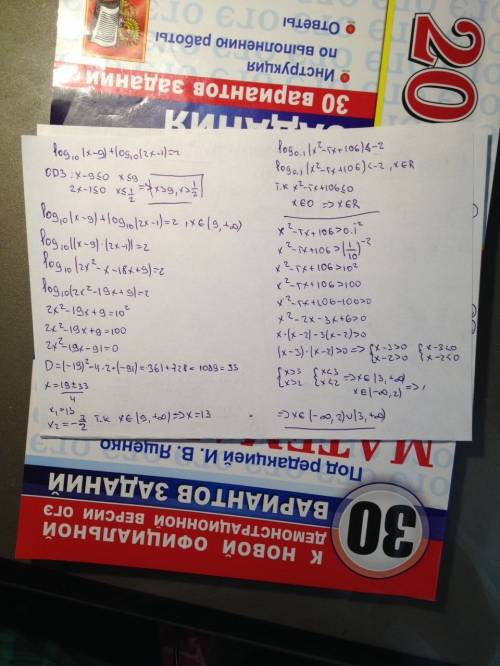 20
Ответы
по выполнению работы
Инструкция
30 вариантов заданий
ЗАДАНИЯ
log₁₀(x-9)+log₁₀(2x-1)=2
ОДЗ: x-9≤0 x≤9
2x-1≤0 x≤1/2 => x>9, x>1/2
log₁₀(x-9)+log₁₀(2x-1)=2, x∈(9,+∞)
log₁₀((x-9)·(2x-1))=2
log₁₀(2x²-x-18x+9)=2
log₁₀(2x²-19x+9)=2
2x²-19x+9=10²
2x²-19x+9=100
2x²-19x-91=0
D=(-19)²-4·2·(-91)=361+728=1089=33
x=19±33/4
x₁=13
x₂=-7/2 т.к x∈(9,+∞)=>x=13
log₀.₁(x²-5x+106)≤-2
log₀.₁(x²-5x+106)<-2, x∈R
т.к x²-5x+106≤0
x∈O => x∈R
x²-5x+106>0.1⁻²
x²-5x+106>(1/10)⁻²
x²-5x+106>10²
x²-5x+106>100
x²-5x+106-100>0
x²-2x-3x+6>0
x·(x-2)-3(x-2)>0
(x-3)·(x-2)>0 => {x-3>0 {x-3<0
x-2>0 x-2<0
{x>3 {x<3 => x∈(3,+∞)
x>2 x<2 x∈(-∞,2) =>
=> x∈(-∞,2)∪(3,+∞)
МАТЕМ
Под редакцией И. В. Ященко
ВАРИАНТОВ ЗАДАНИЙ
30
ДЕМОНСТРАЦИОННОЙ ВЕРСИИ ОГЭ
К НОВОЙ ОФИЦИАЛЬНОЙ